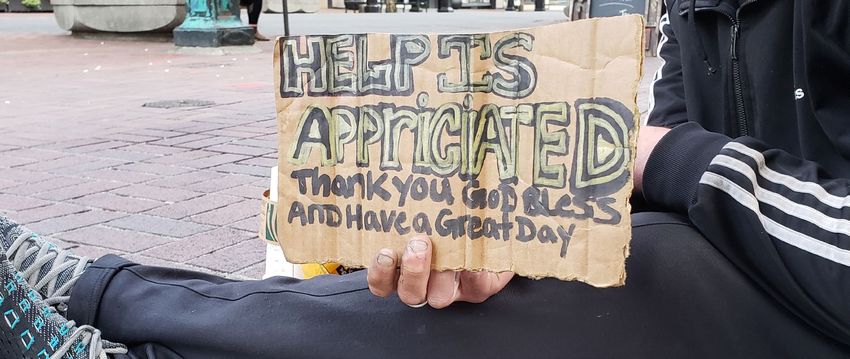 HELP IS
APPriciATED
Thank you God Bless
And Have a Great Day